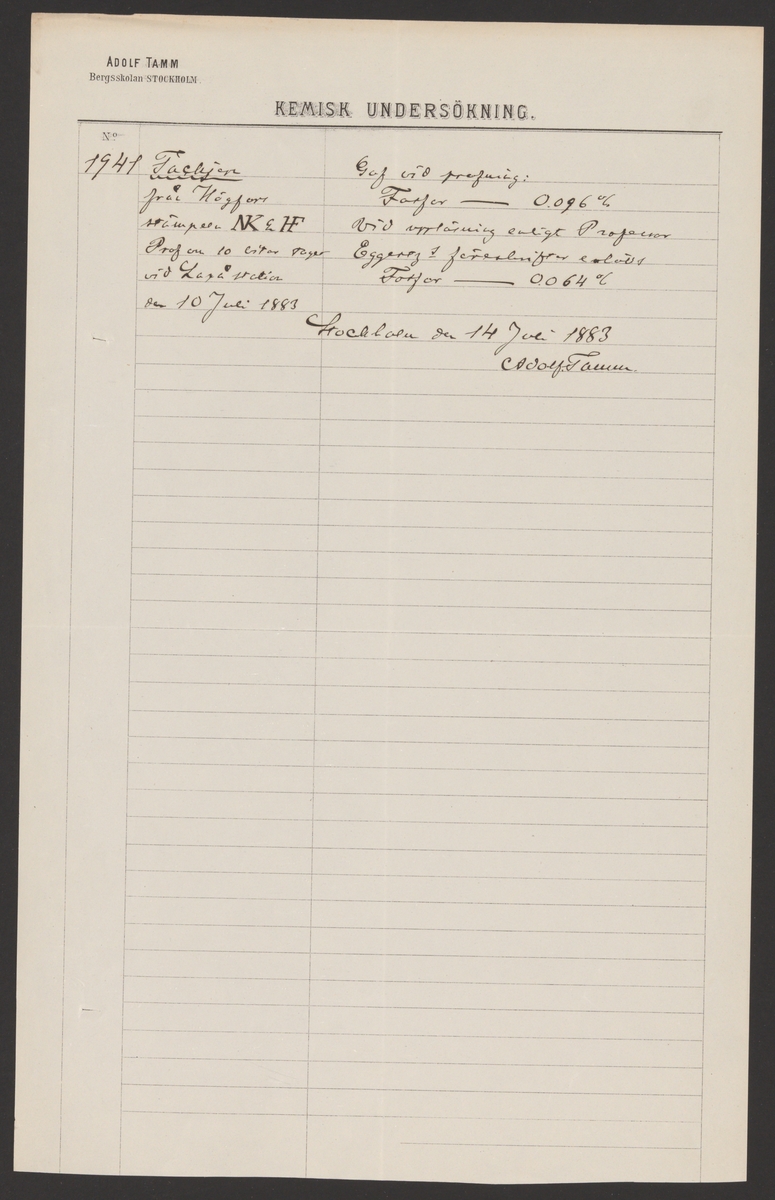 ADOLF TAMM
Bergsskolan STOCKHOLM.
KEMISK UNDERSÖKNING.
No
1941 Tackjern
från Högfors
stämpeln NK & HF
Prof om 10 bitar tagen
vid Lapå station
den 10 Juli 1883
Gaf vid profning:
Fosfor — 0.096 %
Vid upplösning enligt Professor
Eggertz's föreskrifter erhölls
Fosfor — 0.064 %
Stockholm den 14 Juli 1883
Adolf Tamm.